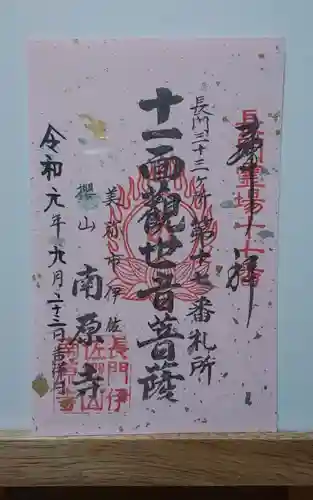 奉拝
長州霊場十七番
長門三十三ケ所第十七番札所
十一面観世音菩薩
美祢市伊佐
櫻山 南原寺
長門伊佐櫻山南原寺
令和元年九月二十三日